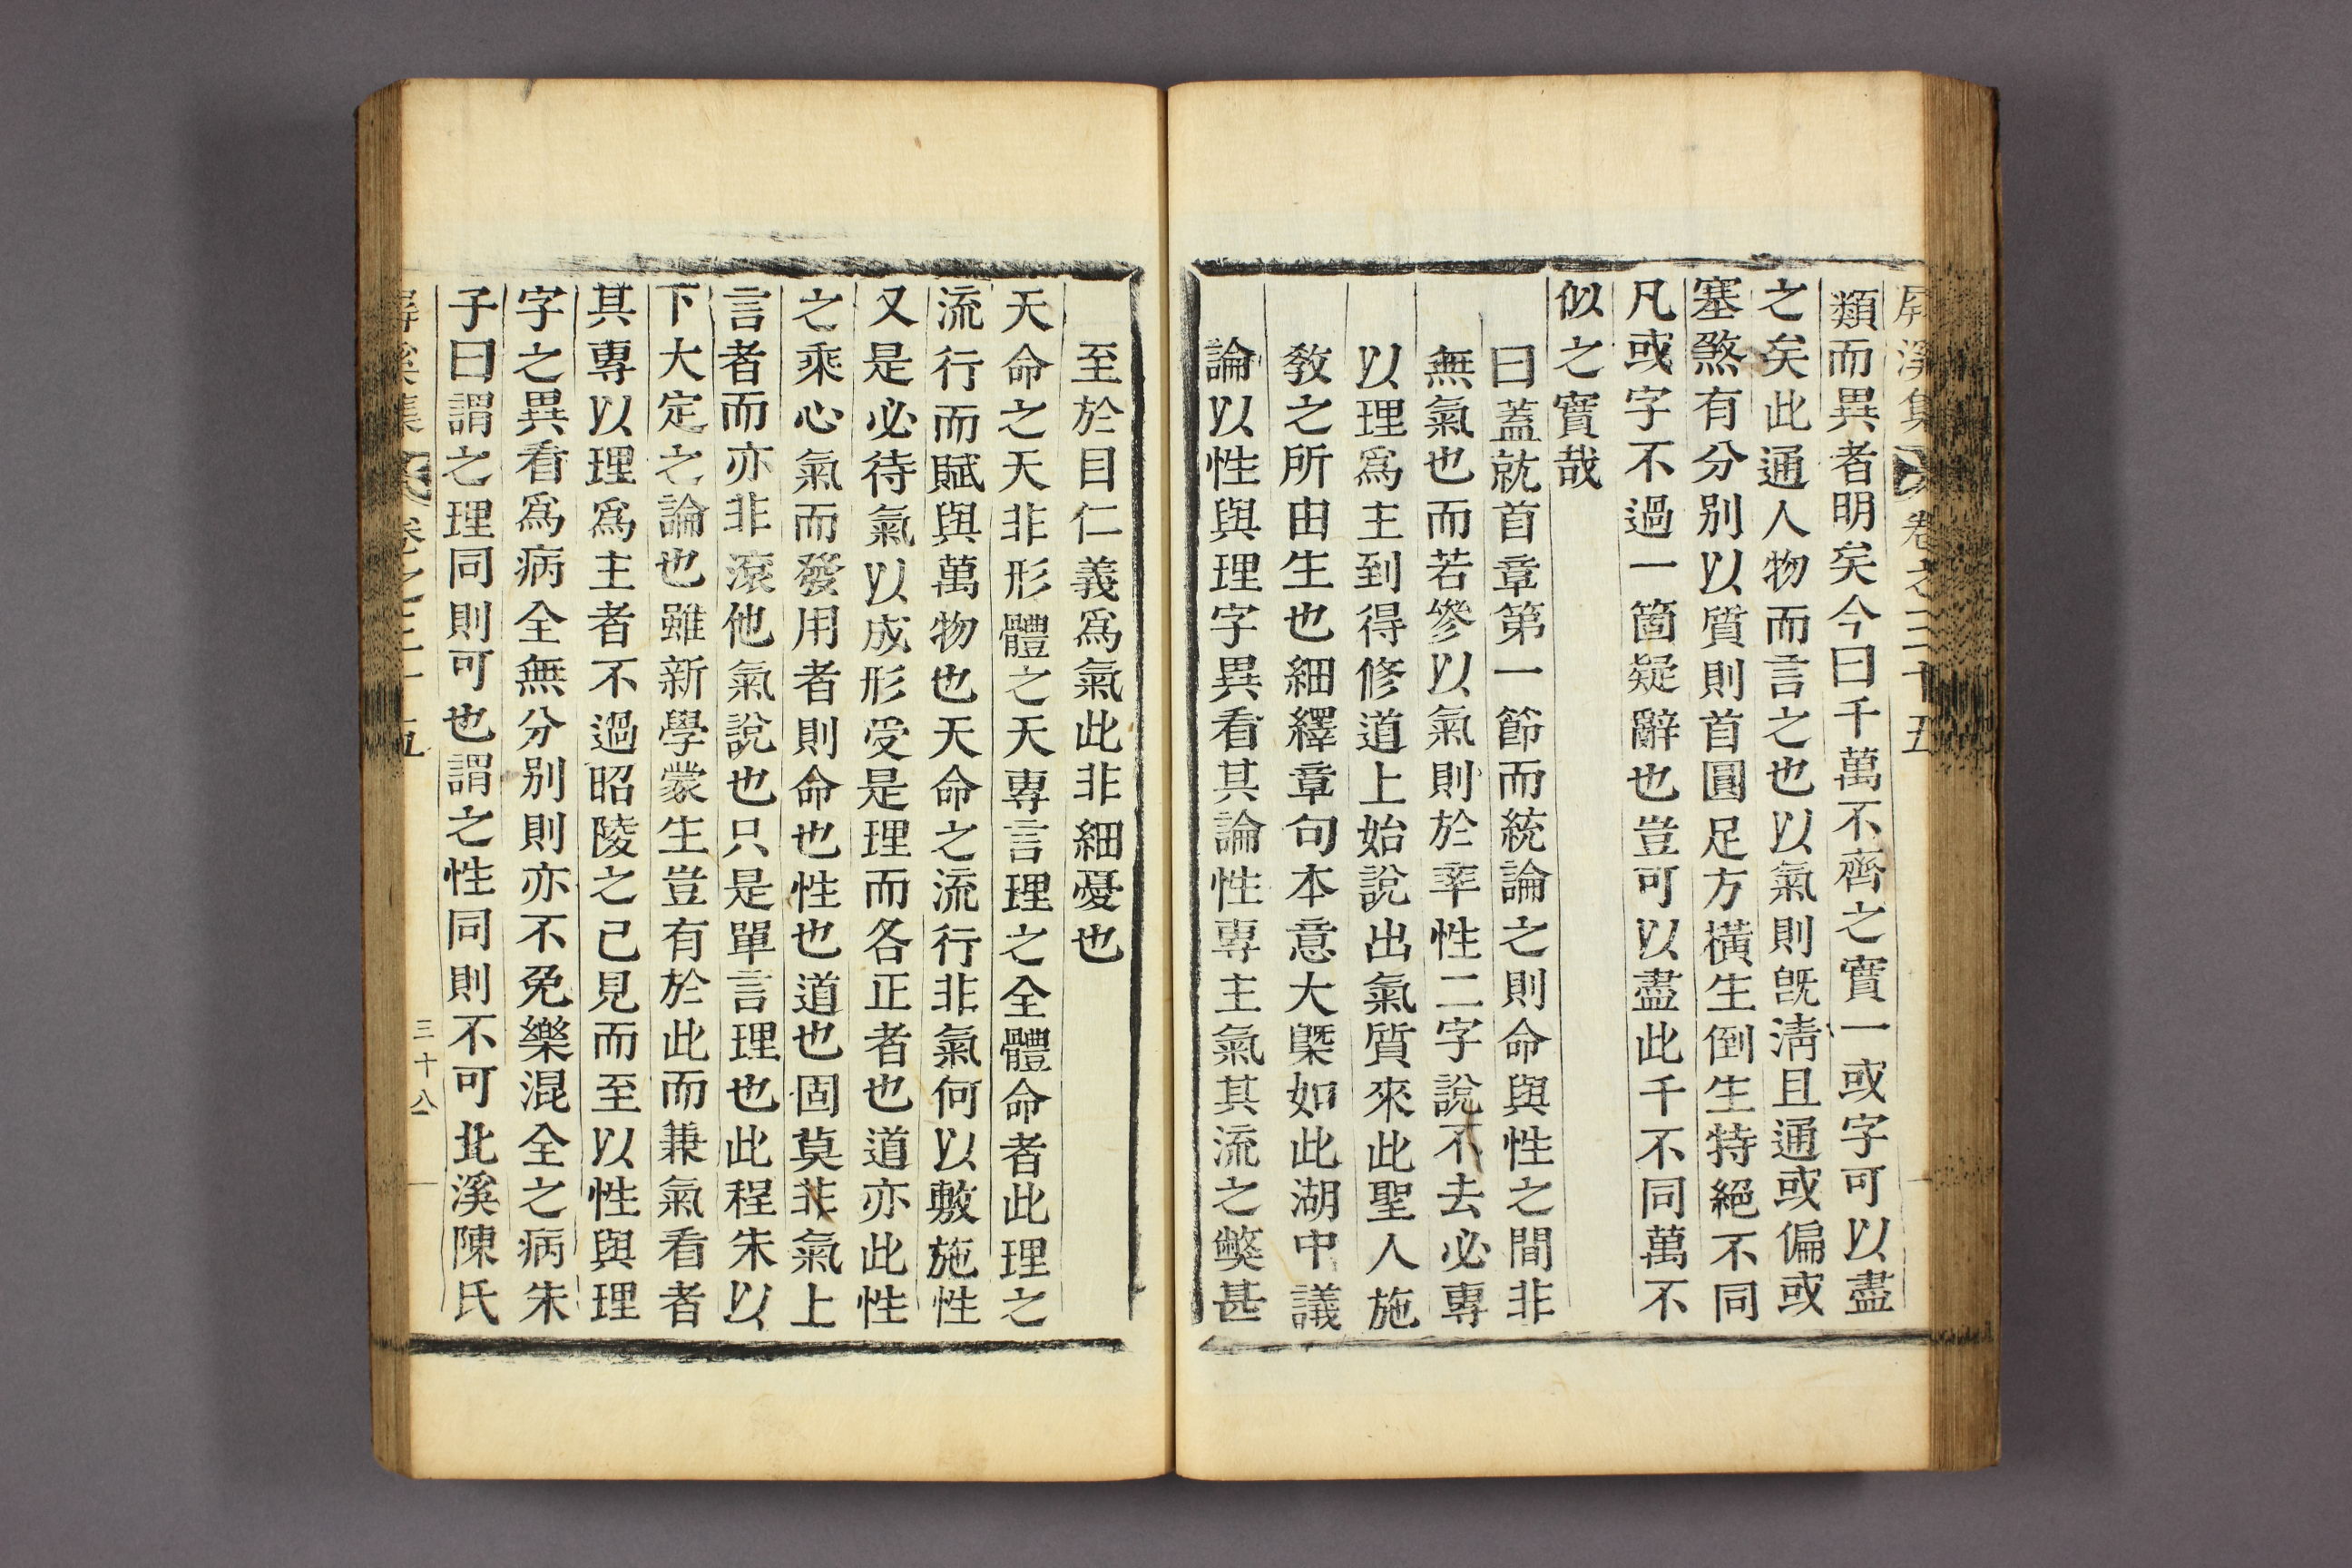 屛溪集 卷之三十五
類而異者明矣今曰千萬不齊之實一或字可以盡
之矣此通人物而言之也以氣則旣淸且通或偏或
塞煞有分別以質則首圓足方橫生倒生特絕不同
凡或字不過一箇疑辭也豈可以盡此千不同萬不
似之實哉
曰蓋就首章第一節而統論之則命與性之間非
無氣也而若參以氣則於率性二字說不去必專
以理爲主到得修道上始說出氣質來此聖人施
敎之所由生也細繹章句本意大槩如此湖中議
論以性與理字異看其論性專主氣其流之獘甚
至於目仁義爲氣此非細憂也
天命之天非形體之天專言理之全體命者此理之
流行而賦與萬物也天命之流行非氣何以敷施性
又是必待氣以成形受是理而各正者也道亦此性
之乘心氣而發用者則命也性也道也固莫非氣上
言者而亦非滾他氣說也只是單言理也此程朱以
下大定之論也雖新學蒙生豈有於此而兼氣看者
其專以理爲主者不過昭陵之已見而至以性與理
字之異看爲病全無分別則亦不免樂混全之病朱
子曰謂之理同則可也謂之性同則不可北溪陳氏
屛溪集 卷之三十五 三十八